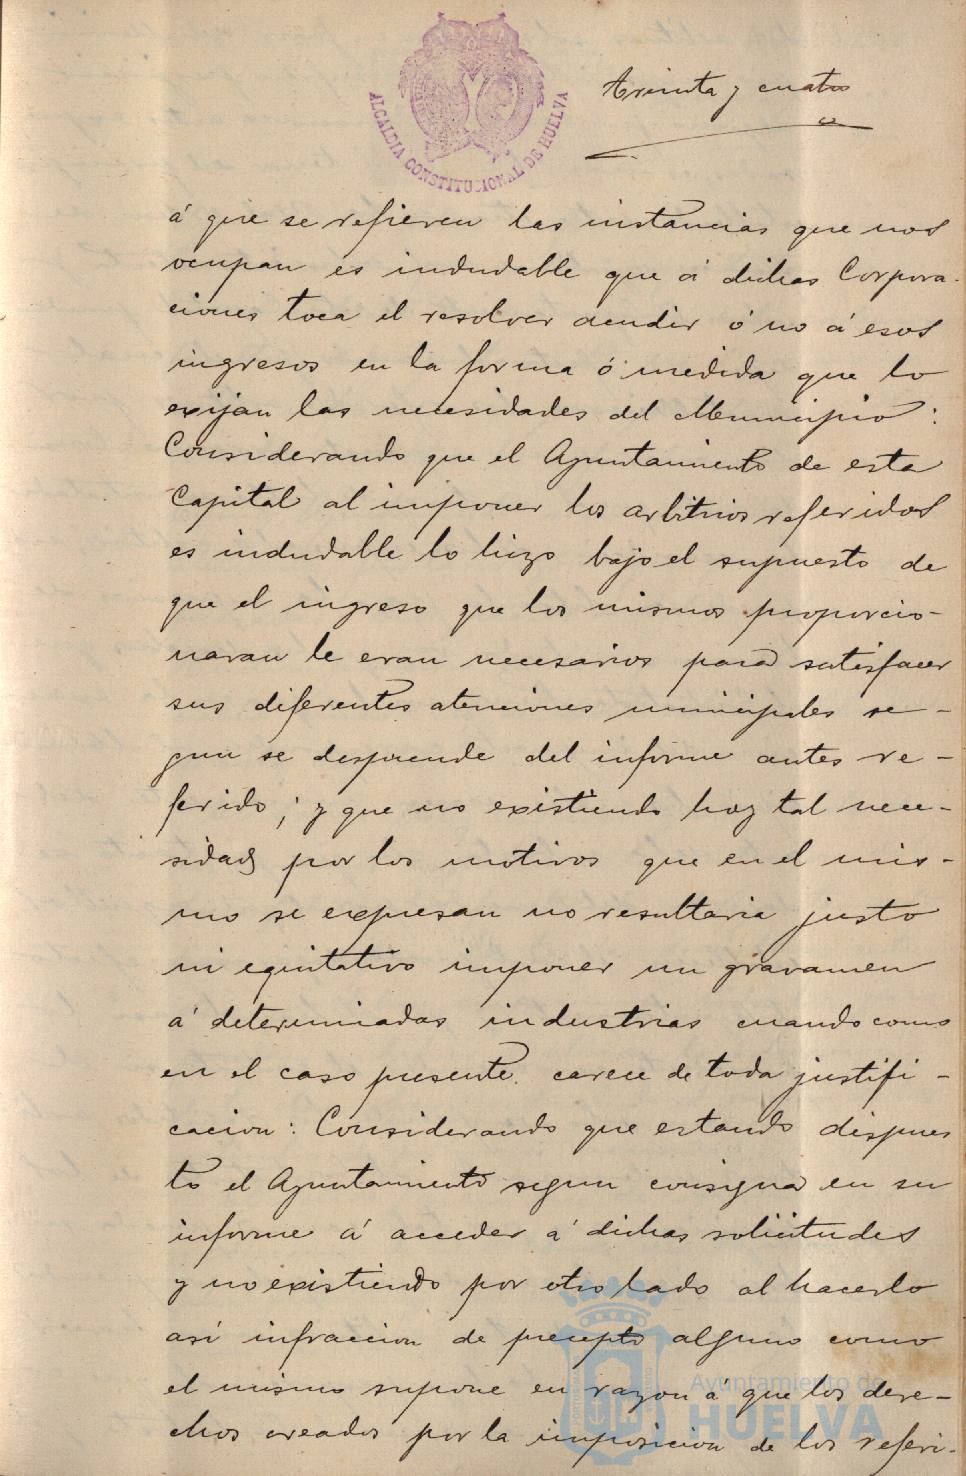 treinta y cuatro
ALCALDIA CONSTITUCIONAL DE HUELVA
á que se refieren las instancias que nos
ocupan es indudable que á dichas Corpora-
ciones toca el resolver acudir ó no á esos
ingresos en la forma ó medida que lo
exijan las necesidades del Municipio:
Considerando que el Ayuntamiento de esta
Capital al imponer los arbitrios referidos
es indudable lo hizo bajo el supuesto de
que el ingreso que los mismos proporcio-
naran le eran necesarios para satisfacer
sus diferentes atenciones municipales se-
gun se desprende del informe antes re-
ferido; y que no existiendo hoy tal nece-
sidad por los motivos que en el mis-
mo se expresan no resultaria justo
ni equitativo imponer un gravamen
á determinadas industrias cuando como
en el caso presente carece de toda justifi-
cacion: Considerando que estando dispues
to el Ayuntamiento segun consigna en su
informe á acceder á dichas solicitudes
y no existiendo por otro lado al hacerlo
así infraccion de precepto alguno como
el mismo supone en razon á que los dere-
chos creados por la imposicion de los referi-
Ayuntamiento de
HUELVA